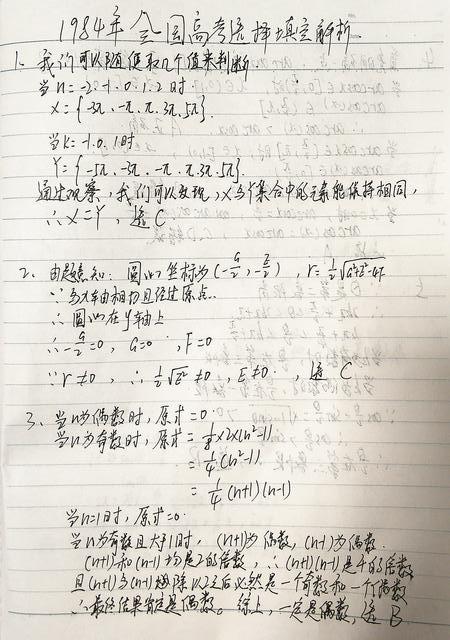 1984年全国高考选择填空解析
1、我们可以随便取几个值来判断
当n=-2.-1.0.1.2时
X={-3π.-π.π.3π.5π}.
当k=-1.0.1时
Y={-5π.-3π.-π.π.3π.5π}.
通过观察，我们可以发现，X与Y集合中的元素能保持相同，
∴X=Y，选C
2、由题意知：圆心坐标为(-G/2,-E/2)，r=½√(G²+E²-4F)
∵与X轴相切且经过原点.
∴圆心在y轴上
∴-G/2=0，G=0，F=0
∵r≠0，∴½√E²≠0，E≠0.，选C
3、当n为偶数时，原式=0
当n为奇数时，原式=1/8×2×(n²-1)
=¼(n²-1)
=¼(n+1)(n-1)
当n=1时，原式=0
当n为奇数且大于1时，(n+1)为偶数，(n-1)为偶数.
(n+1)和(n-1)均是2的倍数，∴(n+1)(n-1)是4的倍数
且(n+1)与(n-1)除以2之后必然是一个奇数和一个偶数
∴最终结果肯定是偶数。综上，一定是偶数，选B